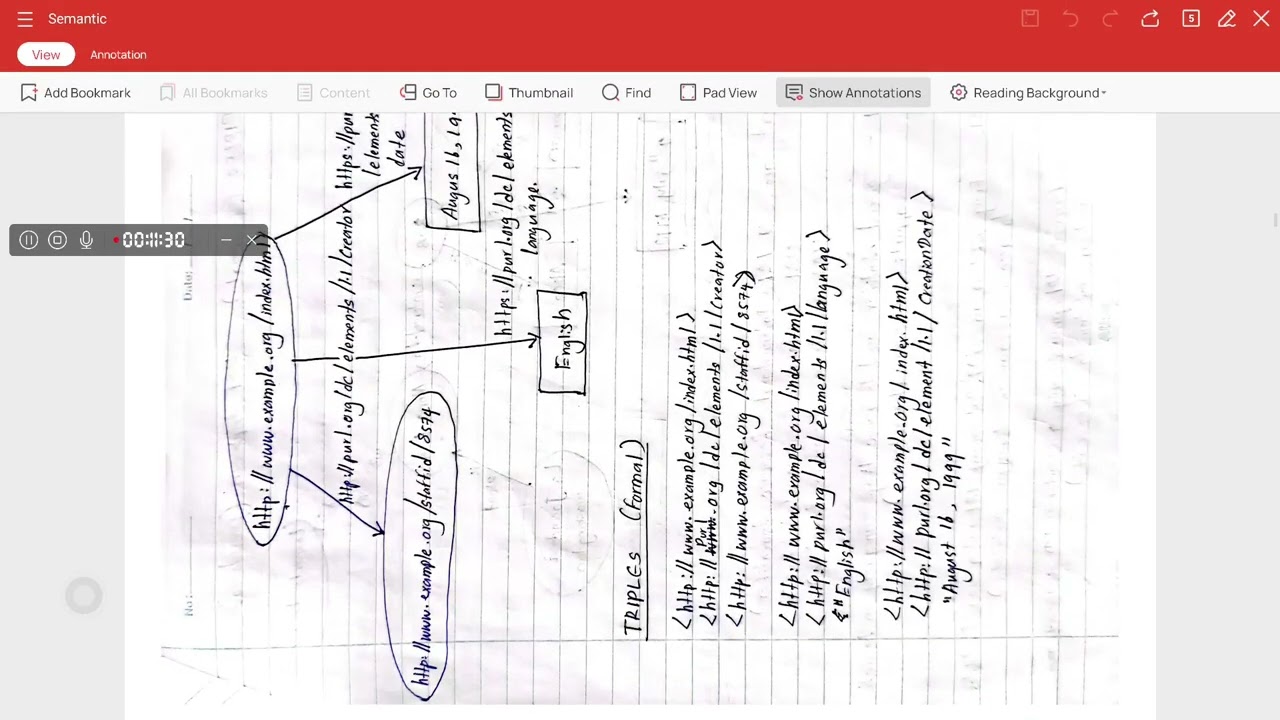 Semantic
5
View
Annotation
Add Bookmark
All Bookmarks
Content
Go To
Thumbnail
Find
Pad View
Show Annotations
Reading Background
00:11:30
No:
Date:
http://www.example.org/index.html
https://pur
/elements
date
http://purl.org/dc/elements/1.1/creator
Augus 16, 19
http://www.example.org/staffid/8574
https://purl.org/dc/elements
language.
English
TRIPLES (formal)
<http://www.example.org/index.html>
<http://purl.org/dc/elements/1.1/creator>
<http://www.example.org/staffid/8574>
<http://www.example.org/index.html>
<http://purl.org/dc/elements/1.1/language>
"English"
<http://www.example.org/index.html>
<http://purl.org/dc/element/1.1/CreationDate>
"August 16, 1999"